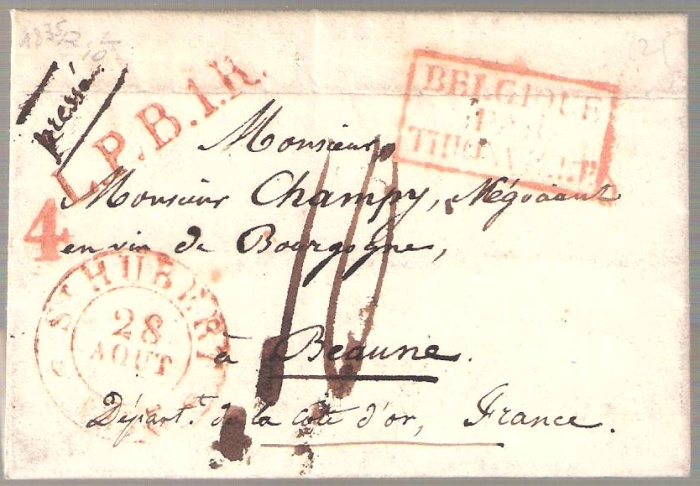 1835
pressé
L.P.B.1.R.
BELGIQUE
PAR
THIONVILLE
Monsieur
Monsieur Champy, Négociant
4
en vin de Bourgogne,
10
ST HUBERT
28
AOUT
à Beaune.
Départ.t de la Côte d'or, France.